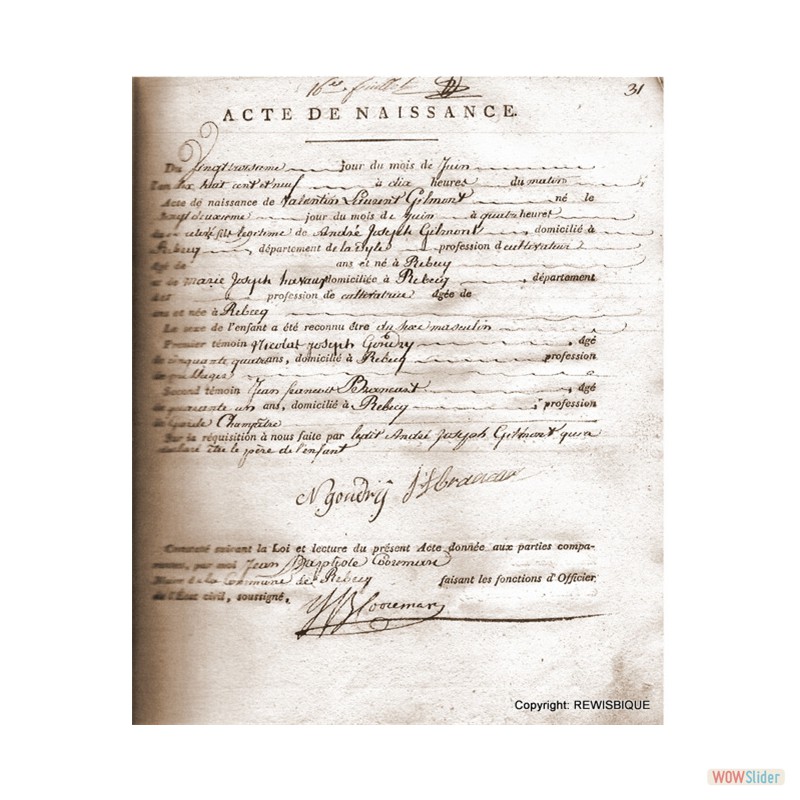 16es feuillet 31
ACTE DE NAISSANCE.
Du Vingt troisieme jour du mois de Juin
l'an dix huit cent et neuf à dix heures du matin
Acte de naissance de Valentin Laurent Gilmont né le
Vingt deuxieme jour du mois de Juin à quatre heures
fils legitime de André Joseph Gilmont, domicilié à
Rebecq, département de la Dyle profession de cultivateur
âgé de ans et né à Rebecq
et de Marie Joseph domiciliée à Rebecq, département
profession de cultivatrice âgée de
ans et née à Rebecq
Le sexe de l'enfant a été reconnu être du sexe masculin
Premier témoin Nicolas Joseph Goudry, âgé
de cinquante quatre ans, domicilié à Rebecq profession
de
Second témoin Jean francois, âgé
de quarante un ans, domicilié à Rebecq, profession
de Garde Champêtre
Sur la réquisition à nous faite par ledit André Joseph Gilmont qui a
déclaré être le père de l'enfant
N goudrÿ
Constaté suivant la Loi et lecture du présent Acte donnée aux parties compa-
rantes, par moi Jean Baptiste Cooreman
Maire de la Commune de Rebecq faisant les fonctions d'Officier
de l'État civil, soussigné.
JB Cooreman
Copyright: REWISBIQUE
WOWSlider